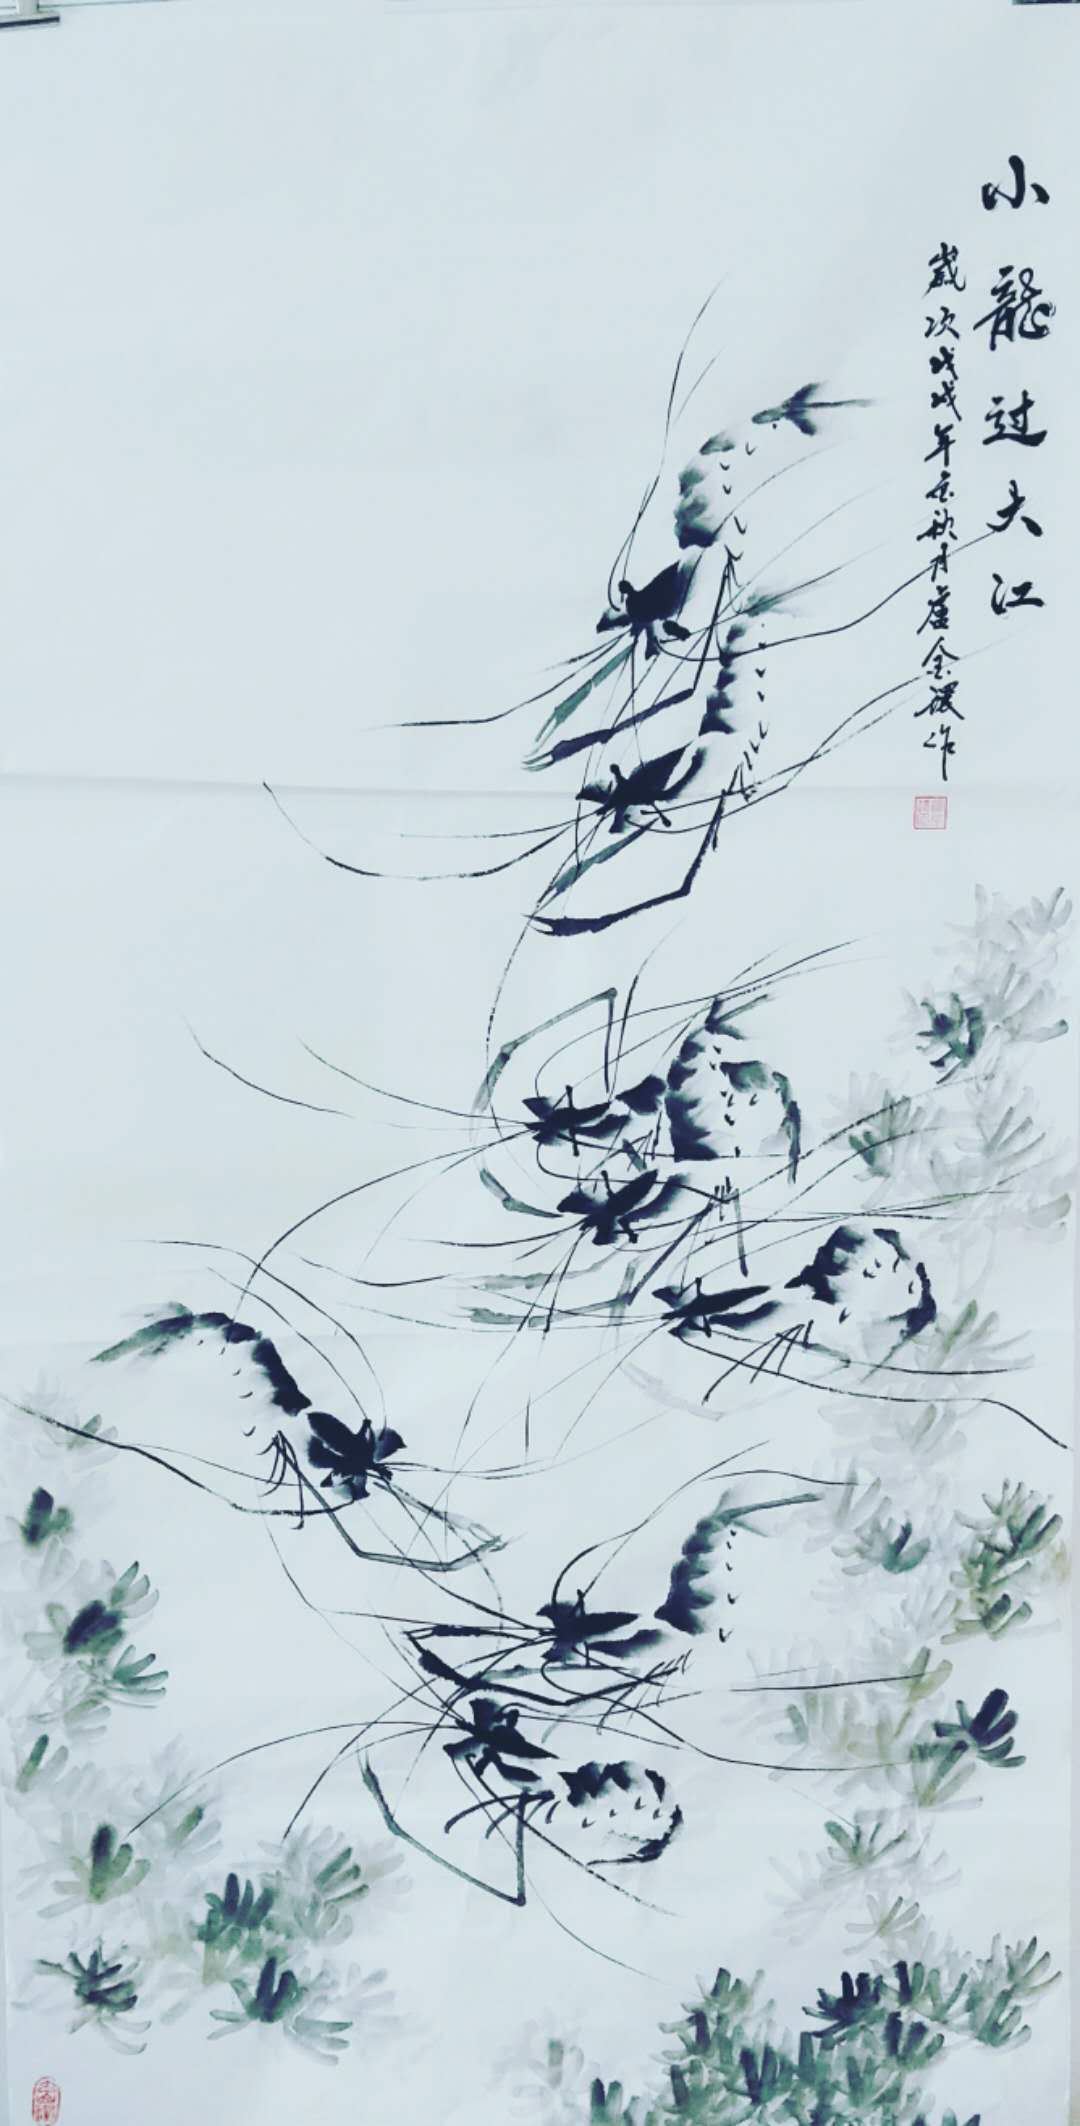 小龍过大江
歲次戊戌年金秋月盧金環作